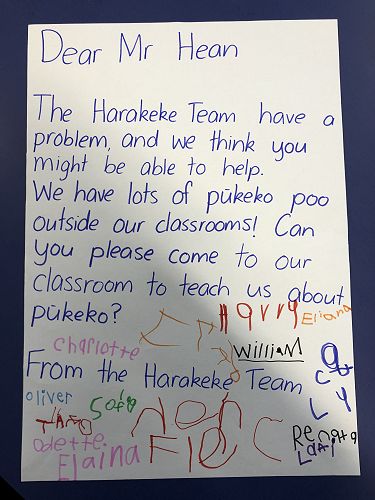 Dear Mr Hean
The Harakeke Team have a
problem, and we think you
might be able to help.
We have lots of pūkeko poo
outside our classrooms! Can
you please come to our
classroom to teach us about
pūkeko?
Harry
Eliana
Charlotte
William
From the Harakeke Team
oliver
Sofia
odette
Elaina
Renatta